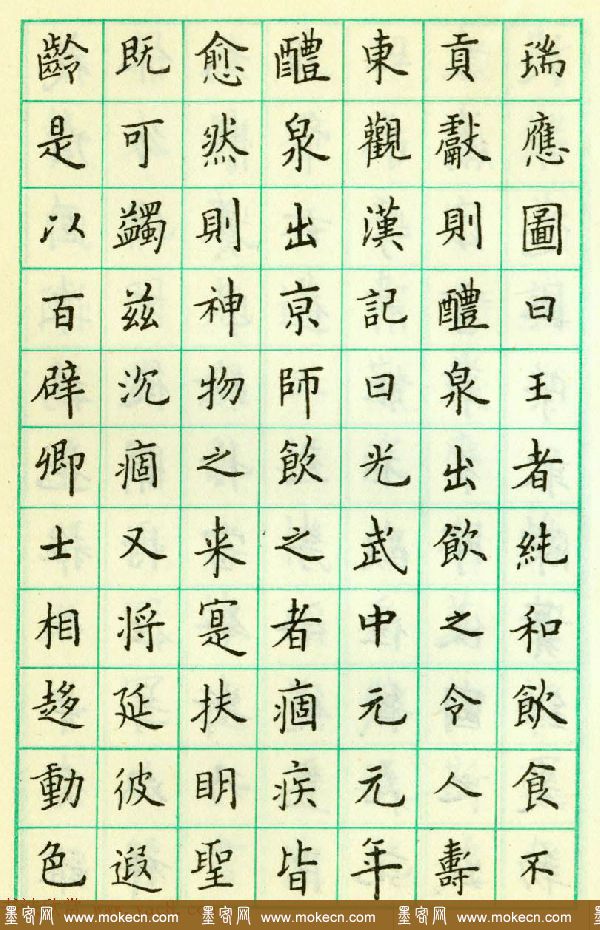 瑞應圖曰王者純和飲食不
貢獻則醴泉出飲之令人壽
東觀漢記曰光武中元元年
醴泉出京師飲之者痼疾皆
愈然則神物之来寔扶明聖
既可蠲兹沉痼又将延彼遐
齡是以百辟卿士相趍動色
墨客网 www.mokecn.com 墨客网 www.mokecn.com 墨客网 www.mokecn.com